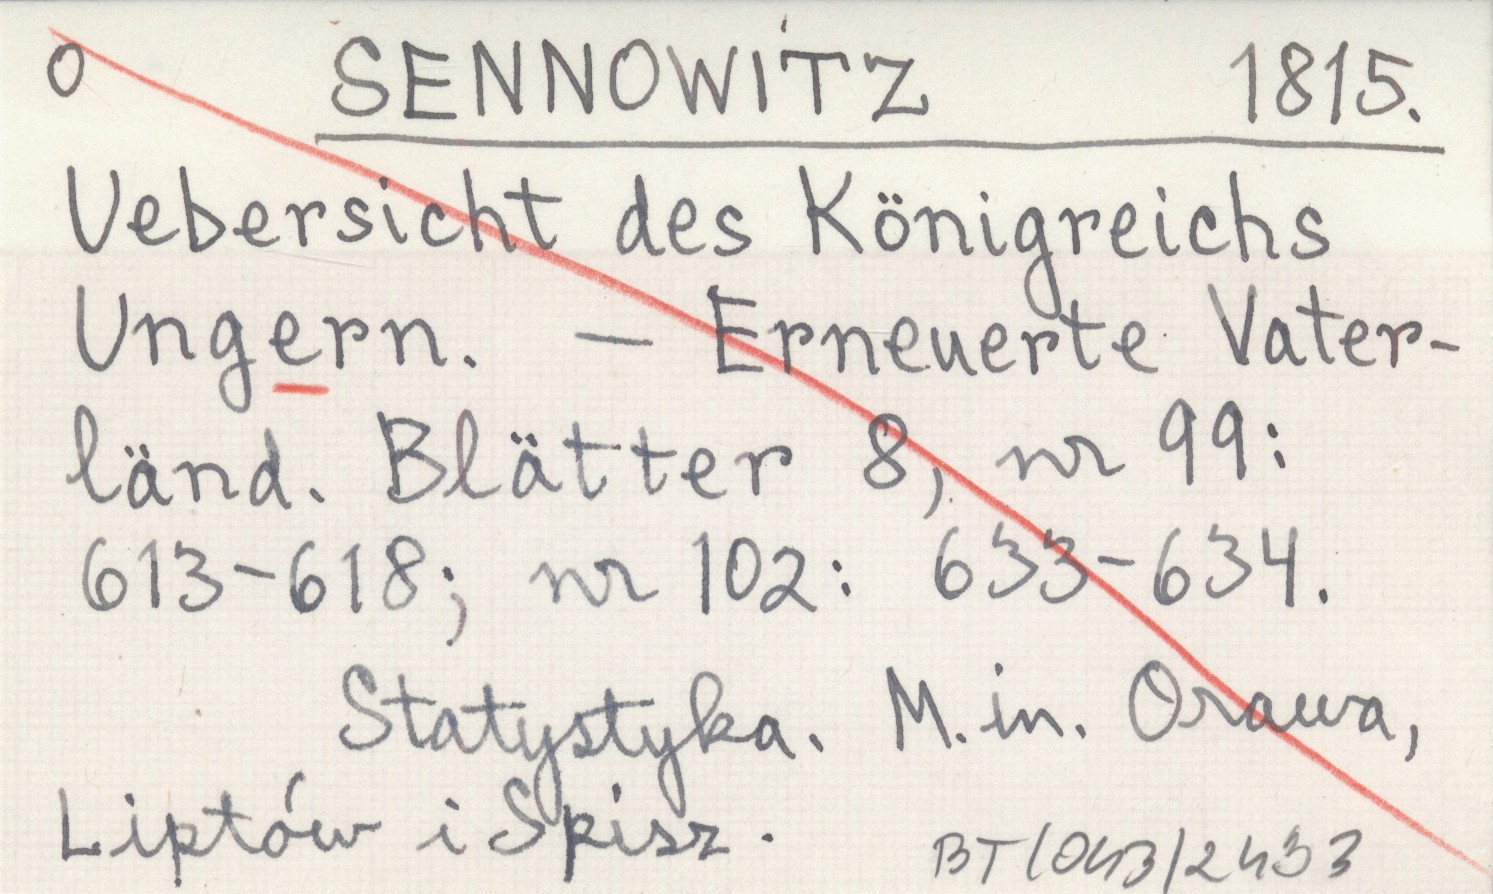 O SENNOWITZ 1815.
Uebersicht des Königreichs
Ungern. — Erneuerte Vater-
länd. Blätter 8, nr 99:
613-618; nr 102: 633-634.
Statystyka. M. in. Orawa,
Liptów i Spisz.
BT/043/2433